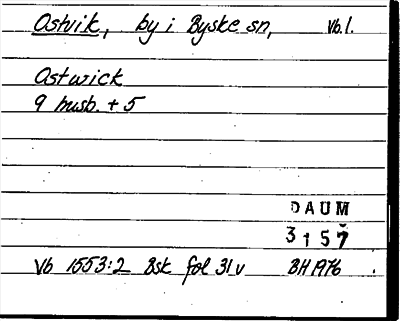 Ostvik, by i Byske sn, Vb.l.
Ostwick
9 husb. + 5
DAUM
3157
Vb 1553:2 Bsk fol 31 v BH 1976